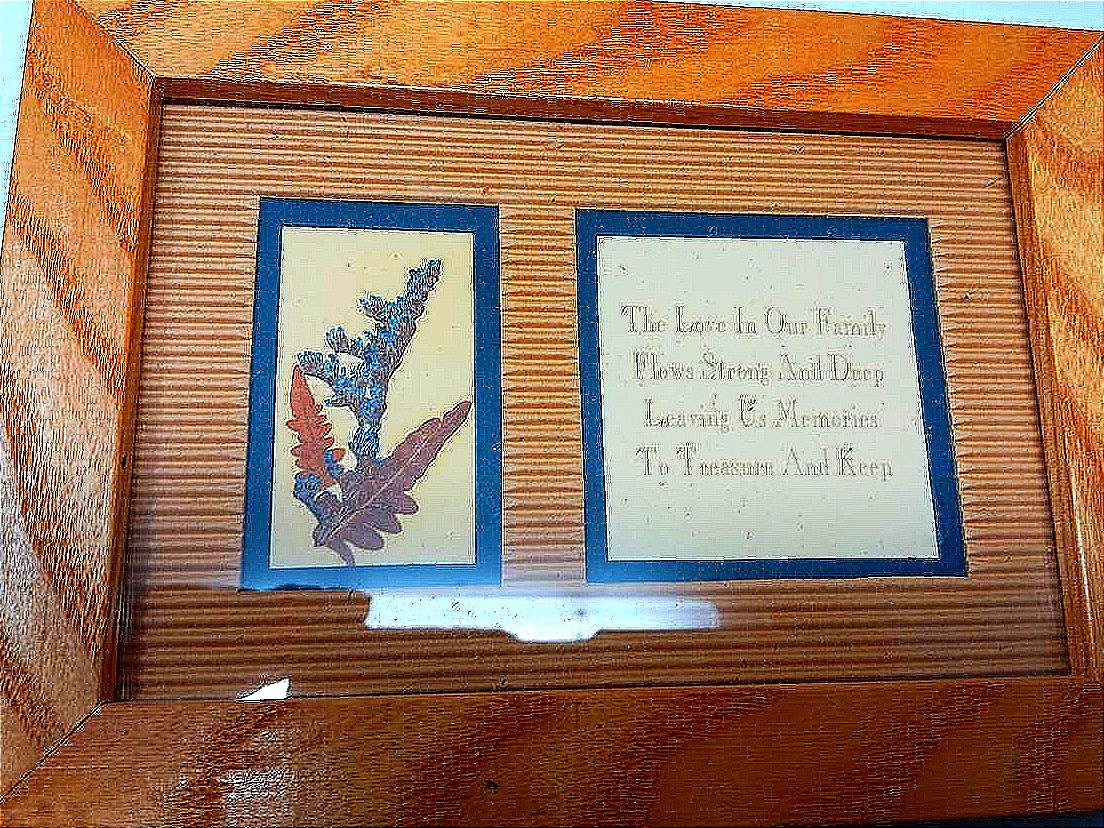 The Love In Our Family
Flows Strong And Deep
Leaving Us Memories
To Treasure And Keep